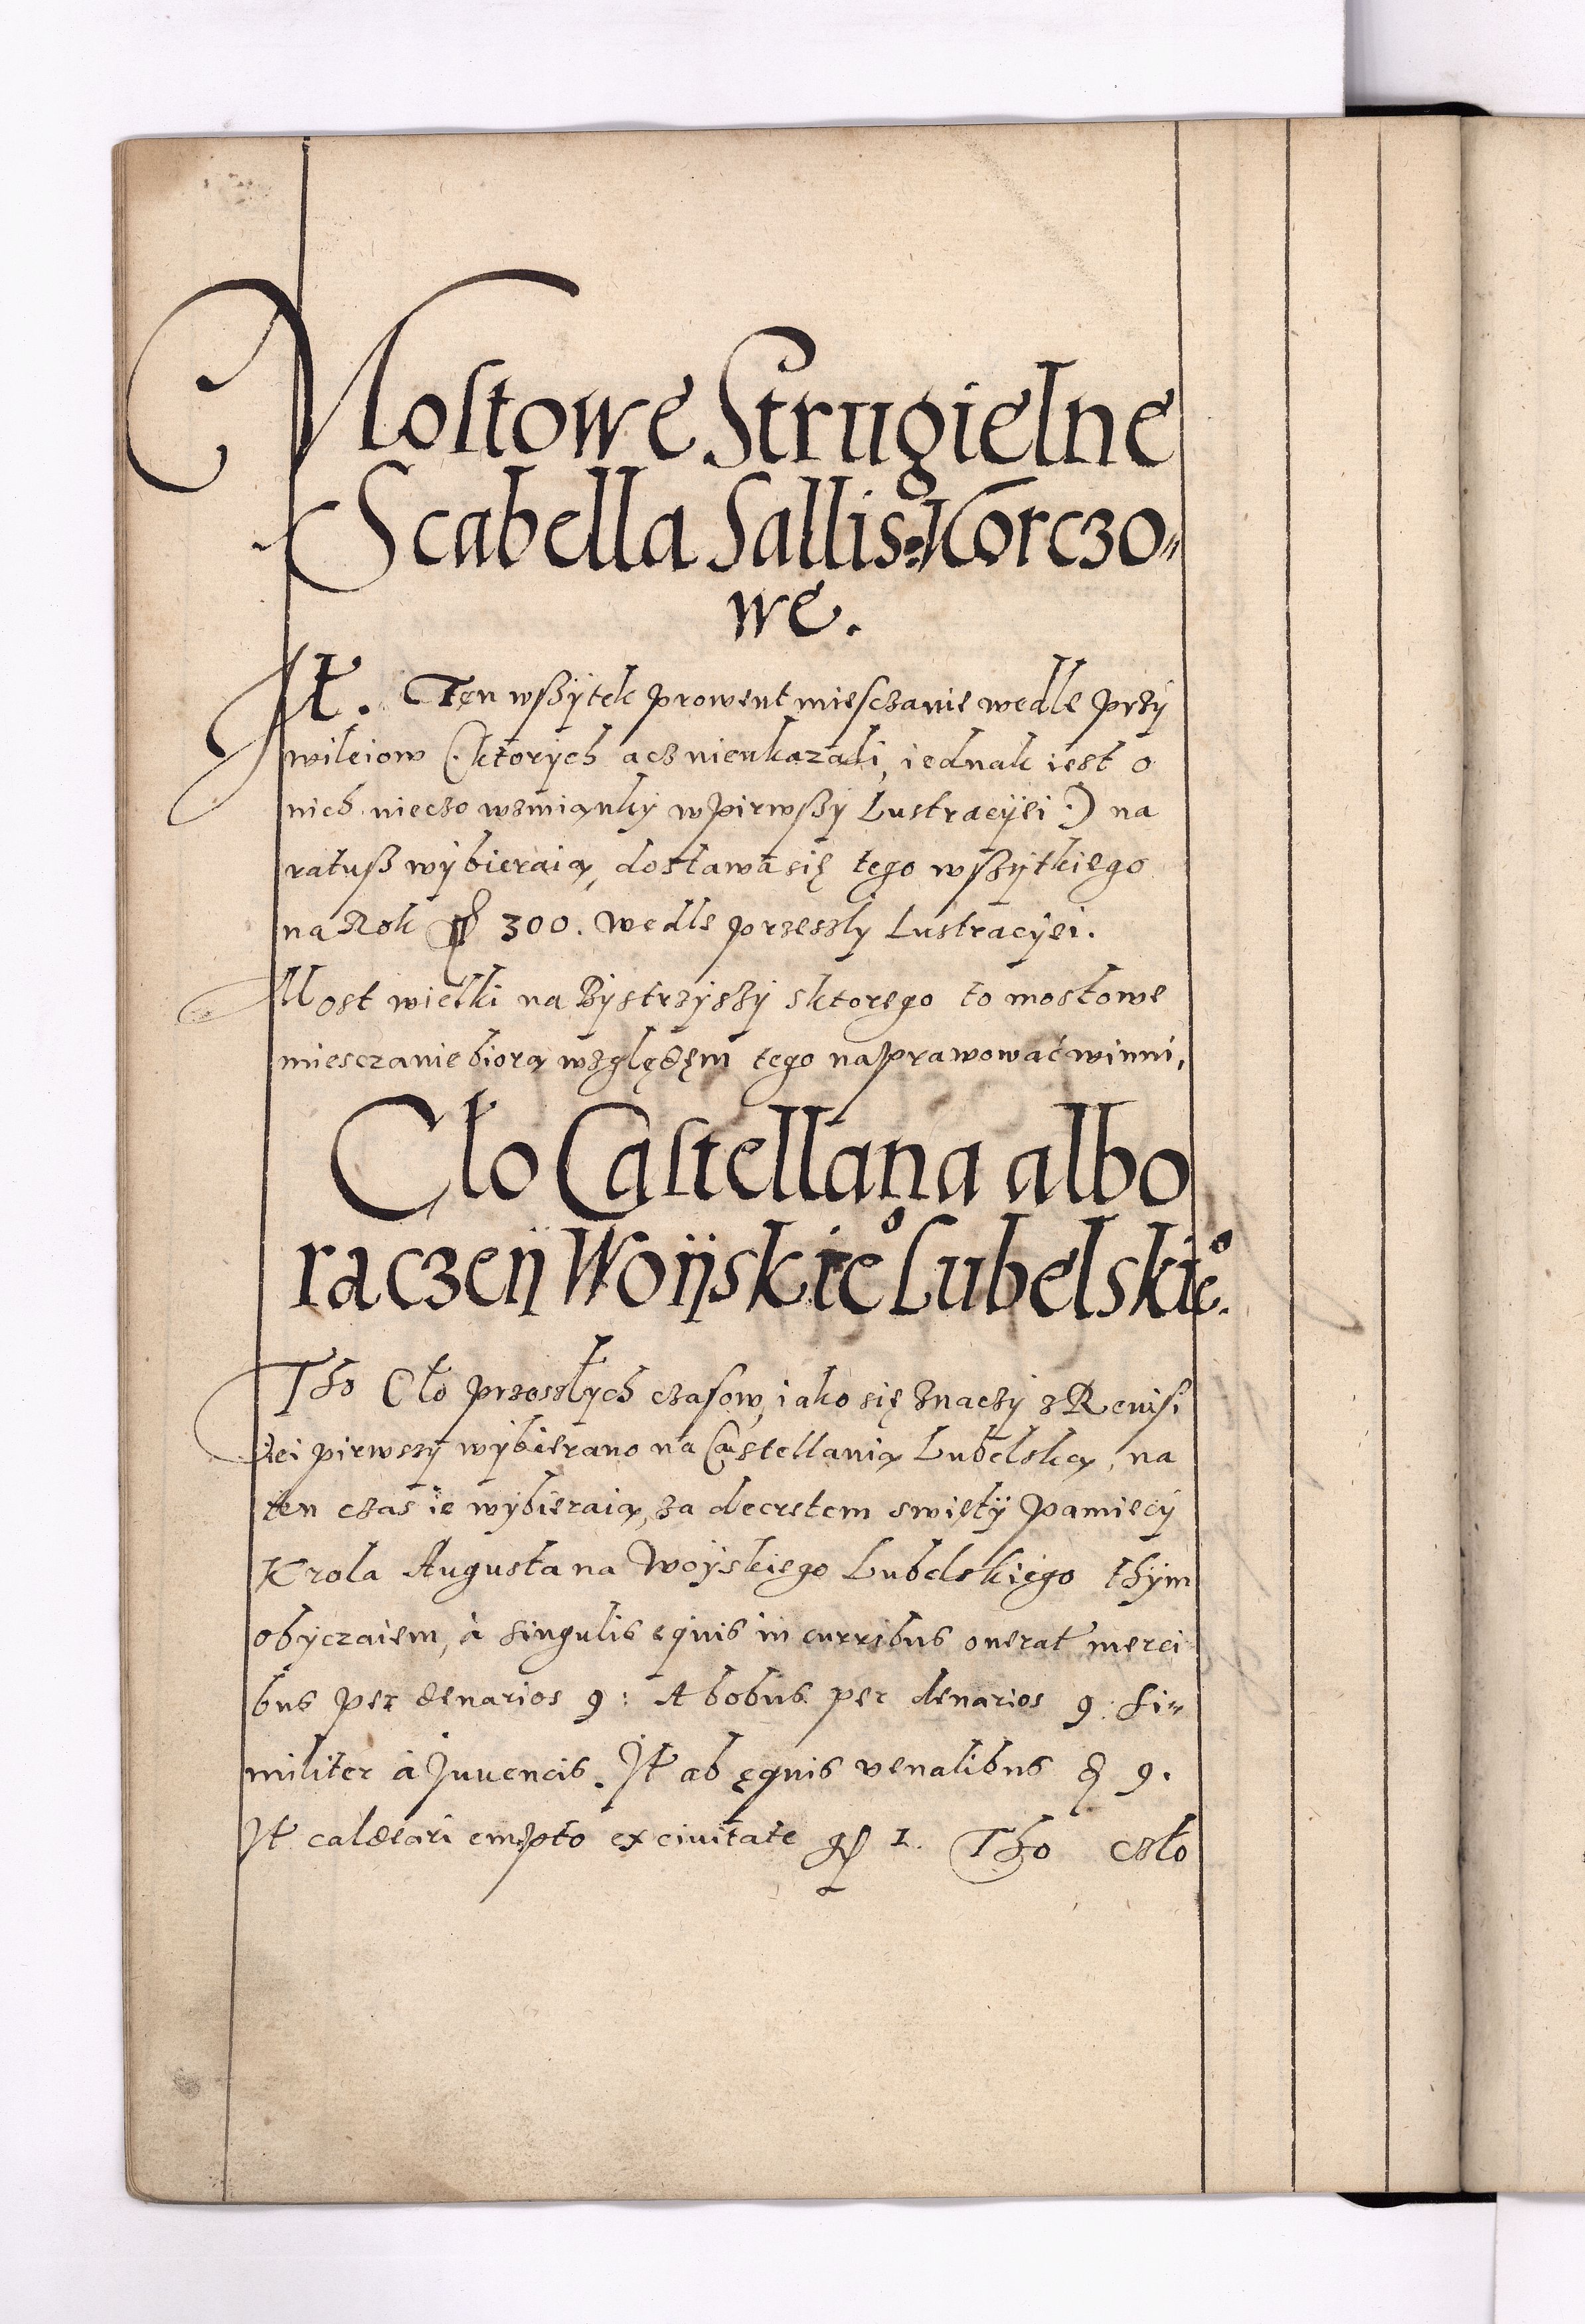 Mostowe Strugielne
Scabella Sallis: Korczo„
we.
It. Ten wszÿtek prowent miesczanie wedle przÿ
wileiow (: ktorÿch acz nieukazali, iednak iest o
nich nieczo wzmiąnkÿ w pirwszÿ Lustracÿei :) na
ratusz wÿbieraią, dostawa się tego wszÿtkiego
na Rok 300. Wedle przeszłÿ Lustracÿei.
Most wielki na Bÿstrzÿszÿ sktorego to mostowe
miesczanie biorą względęm tego naprawować winni,
Cło Castellana albo
raczeÿ Woÿskieº Lubelskieº.
Tho Cło przeszłÿch czasow, iako się znaczÿ z Rewis,
iei pirwszÿ wÿbierano na Castellanią Lubelską, na
ten czas ie wÿbieraią, za decretem swiętÿ pamiecÿ
Krola Augusta na Woÿskiego Lubelskiego thÿm
obÿczaiem, à singulis equis in curribus onerat merci
bus per denarios 9: A bobus per denarios 9. Si„
militer à Juuencis. It ab equis venalibus 9.
It caldeari empto ex ciuitate 1. Tho czło